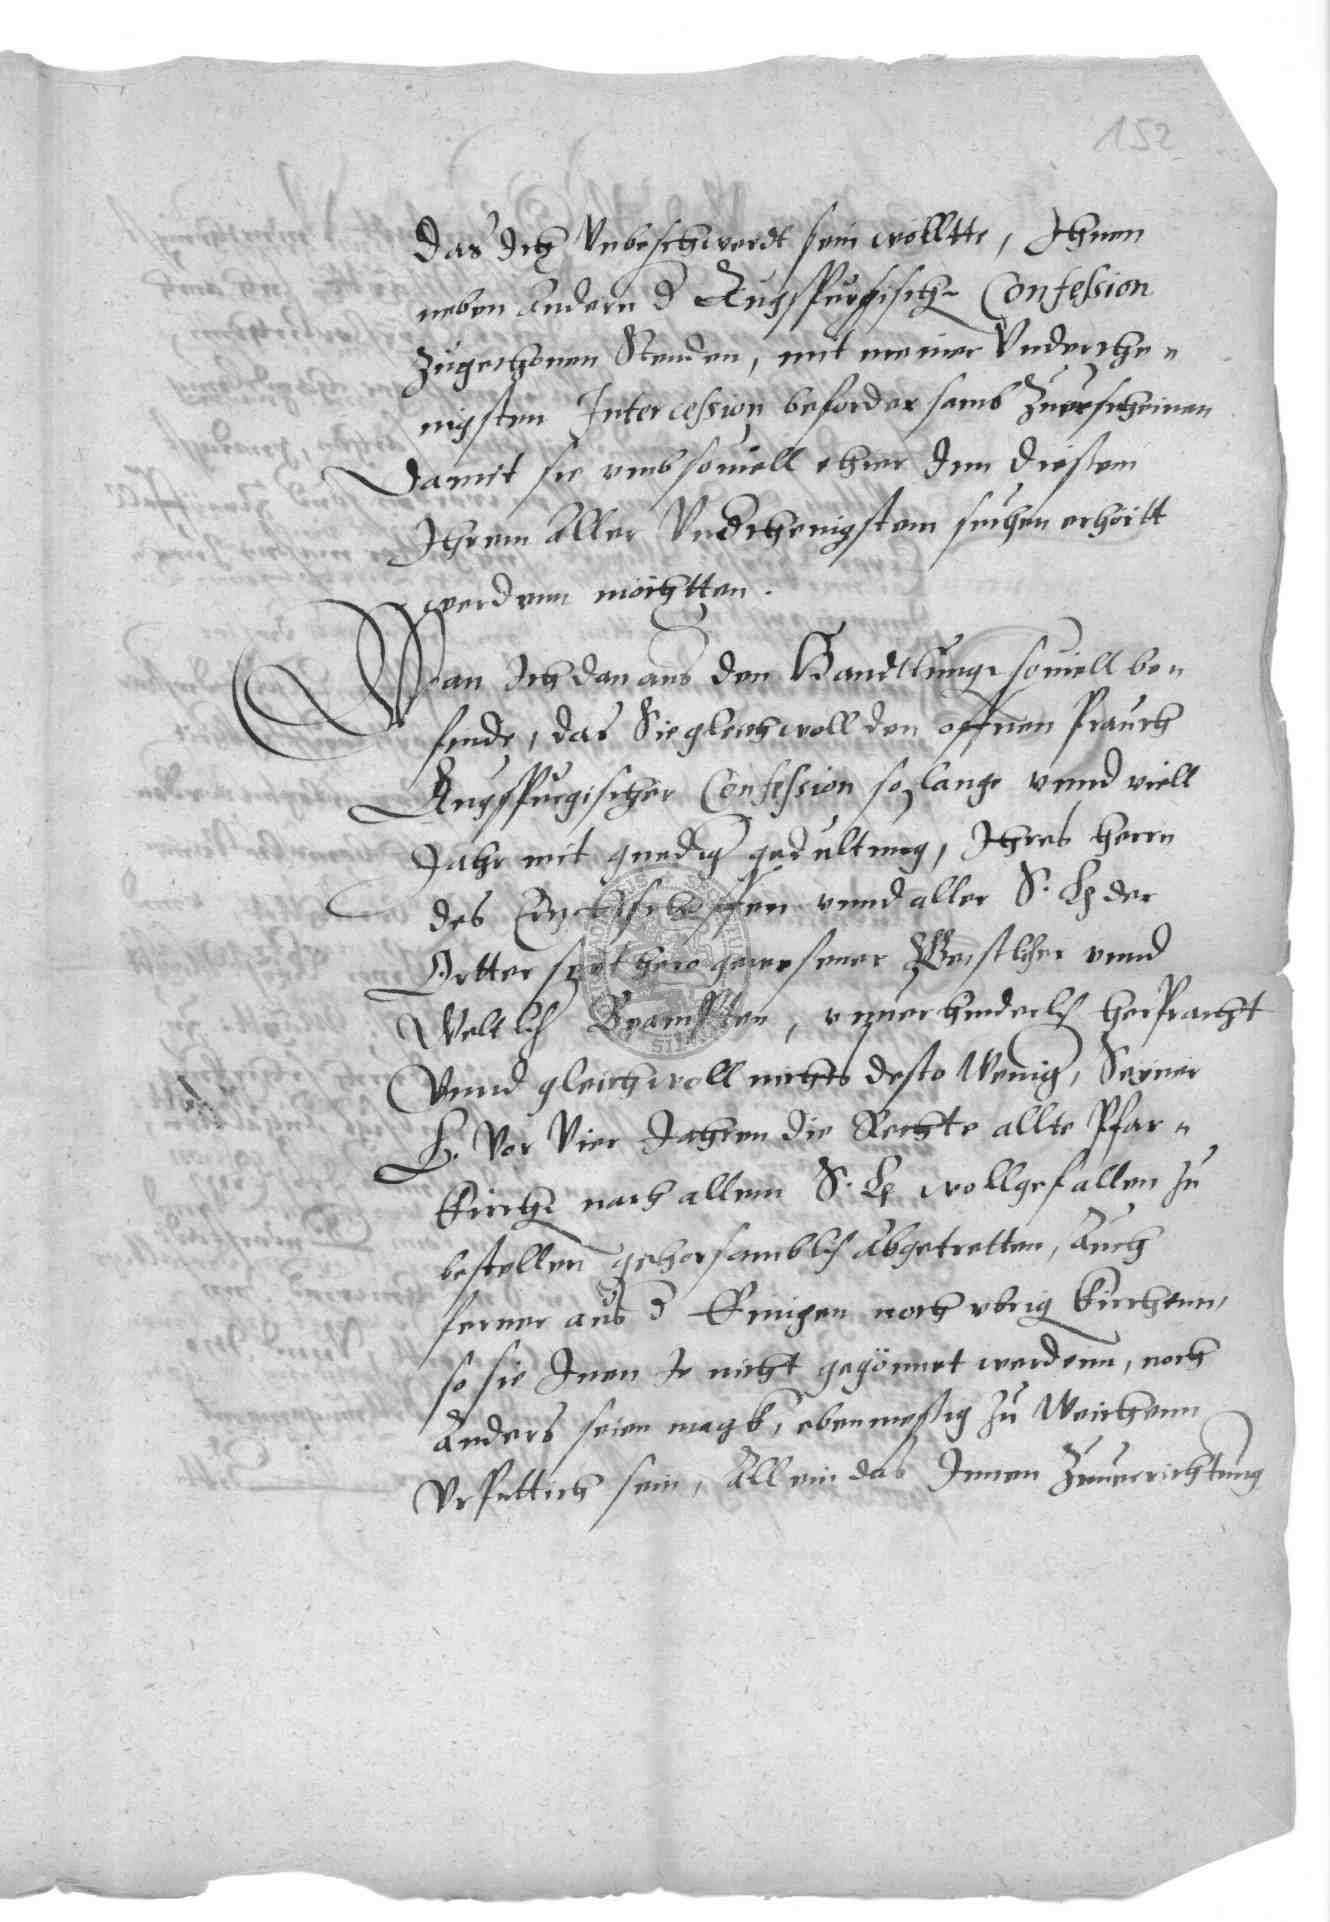 152
Das Ich Vnbeschwerdt sein wolltte, Ihnen
neben andern d Augspurgisch Confession
zugethonen Stenden, mit meiner Vnderthe=
nigsten Intercession befordersamb zuerscheinen
Damit sie vmb souiell ehrer Inn diesem
Ihrem aller Vnderthenigstem suchen erhörtt
werdenn möchtten.
Wan Ich dan aus den Handtlung souiell be=
finde, das Sie gleichwoll den offnen Prauch
Augspurgischer Confession so lange vnnd viell
Jahr mit gnedig gedultung, Ihres herrn
des Ertzbischoffen vnnd aller S. L der
Ortter seithero gewesener Geistlicher vnnd
Weltlich Beampten, vnuerhinderlich herpracht
Vnnd gleichwoll nichts desto Wenig, Seiner
L. Vor Vier Jahren die Rechte allte Pfar=
Kirch nach allem S. L wollgefallen zu
bestellen gehorsamblich abgetretten, Auch
ferner aus d Einigen noch vbrig Kirchenn,
so sie Inen Je nicht gegönnet werdenn, noch
Anders seien magk, ebenmessig zu Weichenn
Vrputtich sein, Allein das Innen Zuuerrichtung